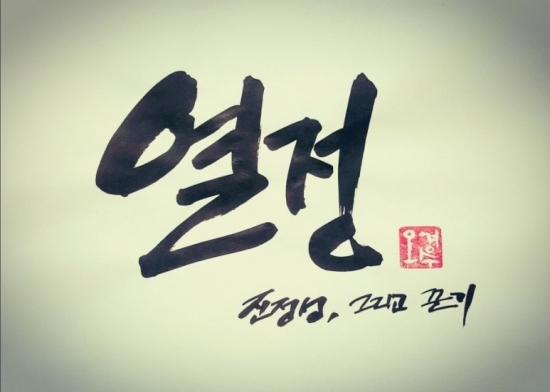 열정
진정성, 그리고 끈기